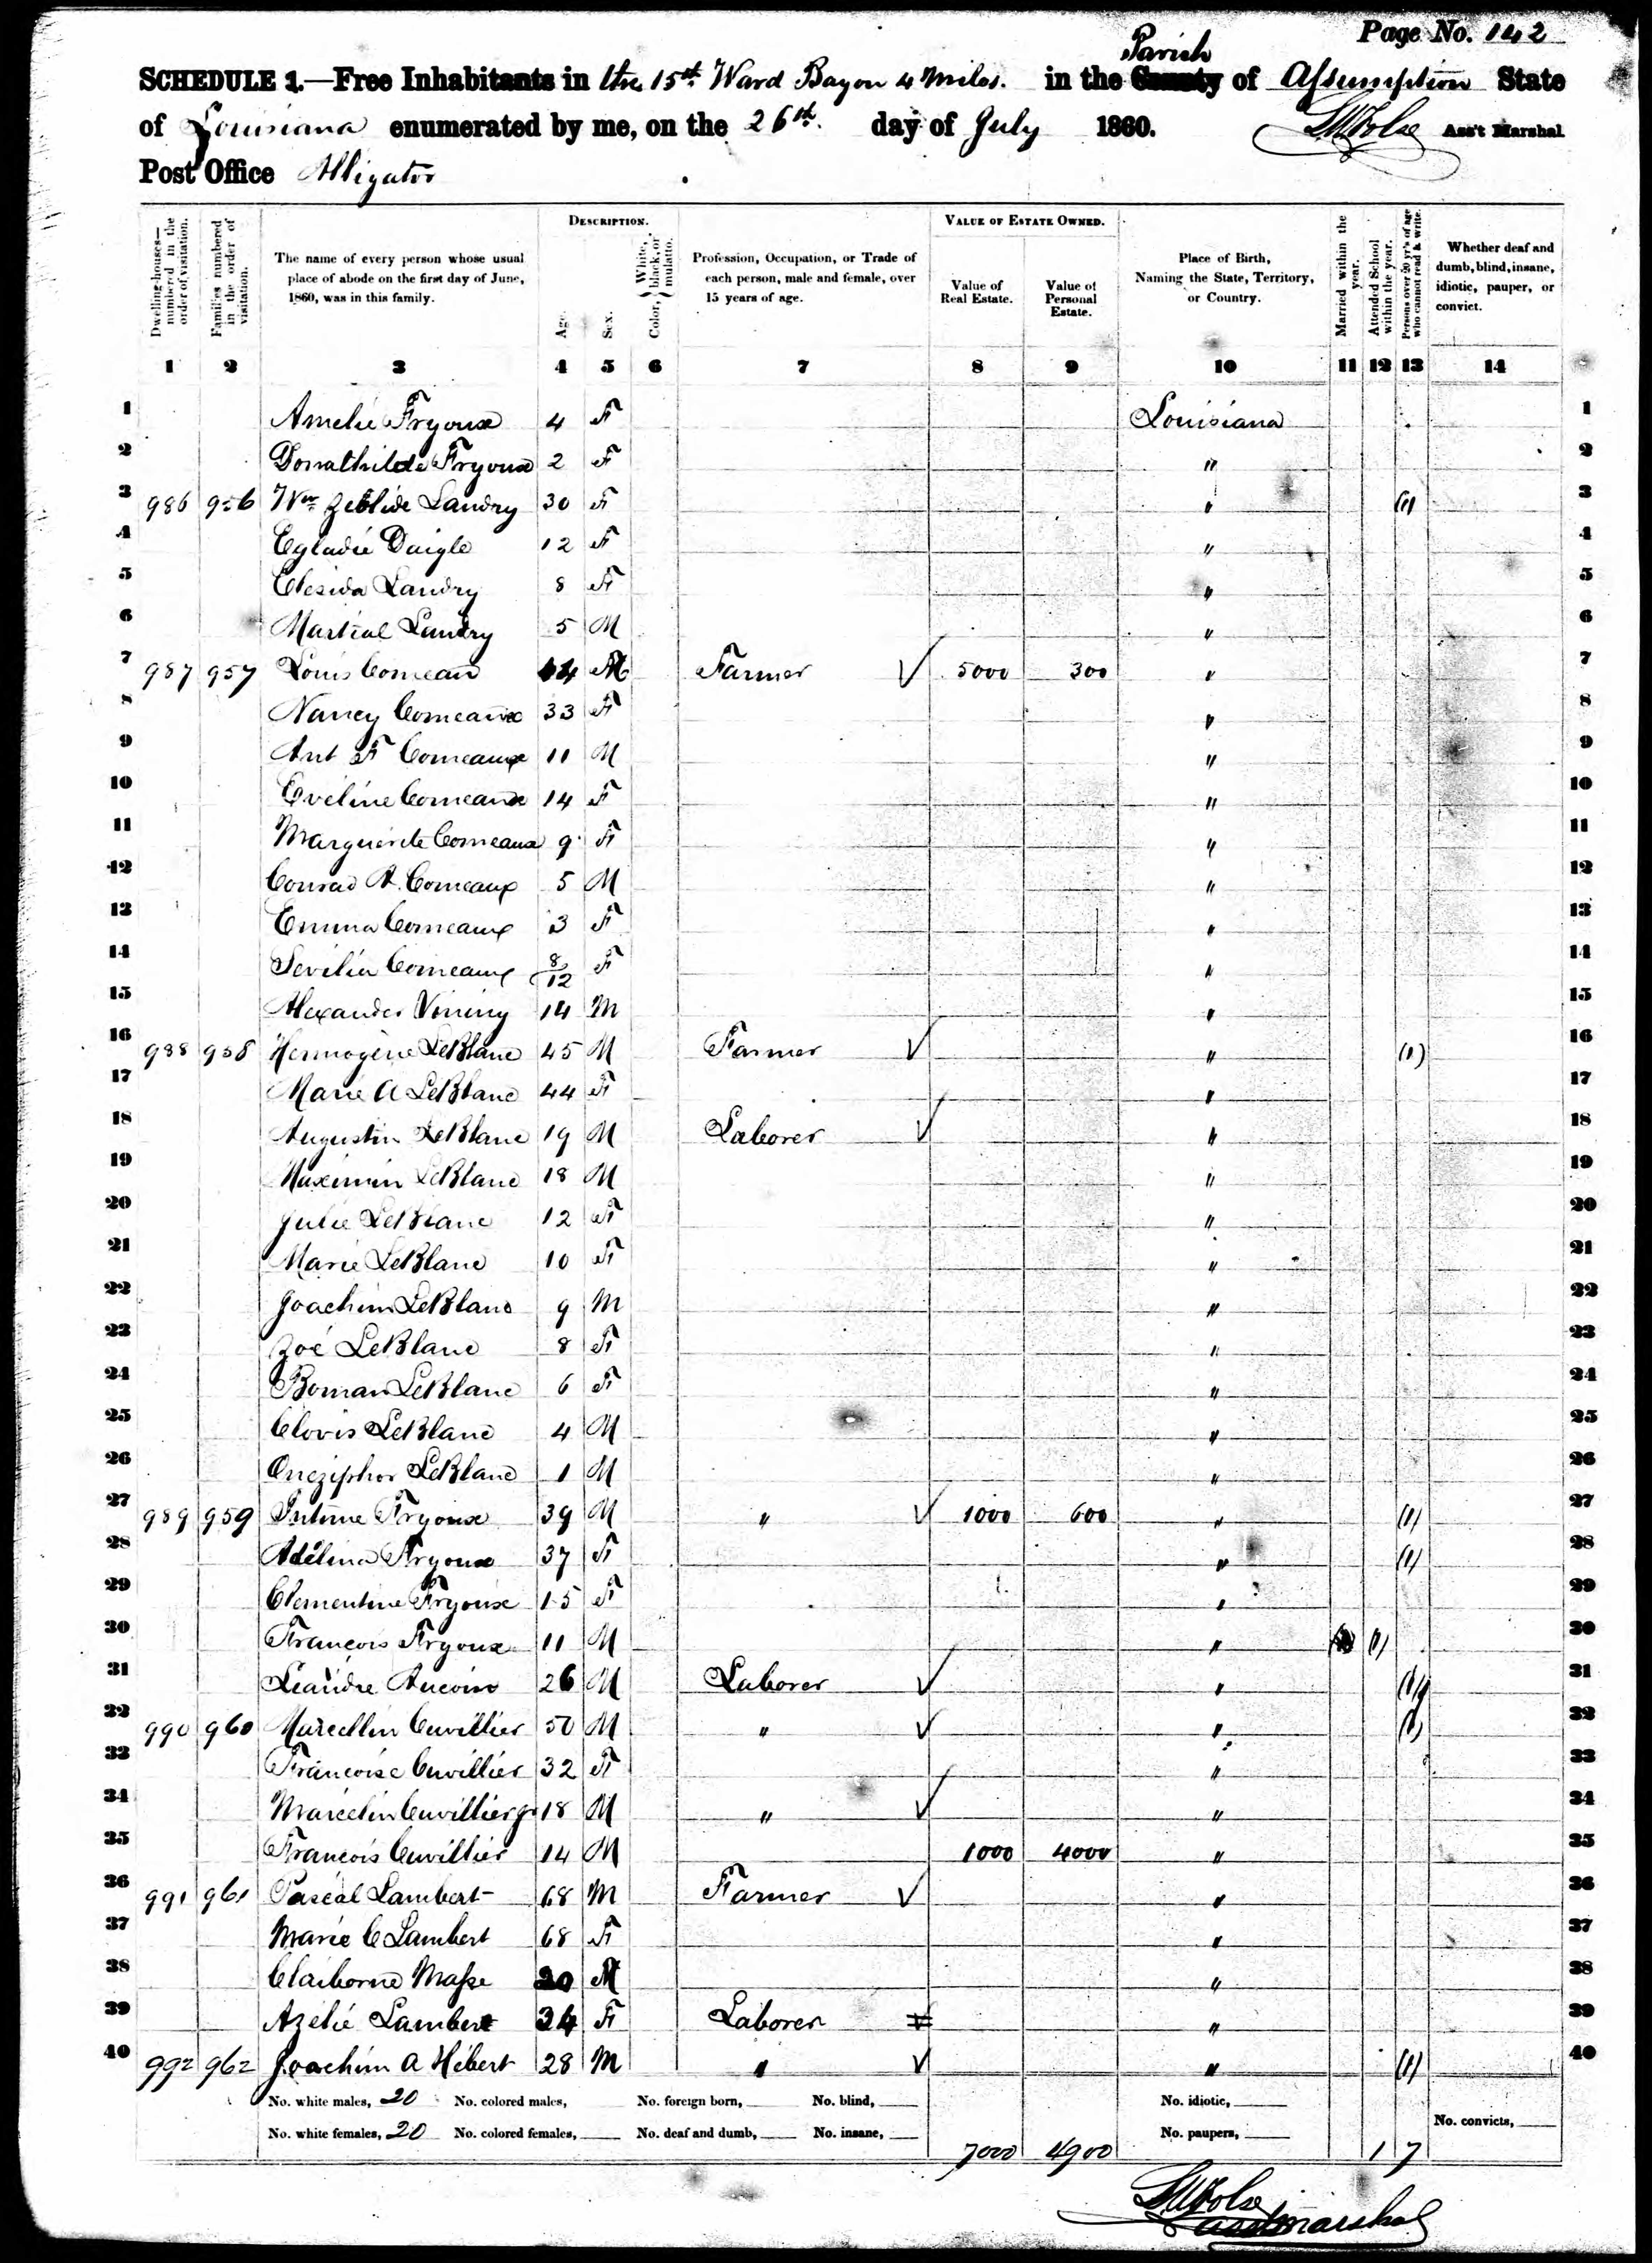 Page No. 142
SCHEDULE 1.—Free Inhabitants in the 15th Ward Bayou 4 Miles. in the Parish County of Assumption State
of Louisiana enumerated by me, on the 26th. day of July 1860. Ass't Marshal
Post Office Alligator
DESCRIPTION. VALUE OF ESTATE OWNED.
Dwelling-houses—numbered in the order of visitation. Families numbered in the order of visitation. The name of every person whose usual place of abode on the first day of June, 1860, was in this family. Age. Sex. Color, White, black, or mulatto. Profession, Occupation, or Trade of each person, male and female, over 15 years of age. Value of Real Estate. Value of Personal Estate. Place of Birth, Naming the State, Territory, or Country. Married within the year. Attended School within the year. Persons over 20 yr's of age who cannot read & write. Whether deaf and dumb, blind, insane, idiotic, pauper, or convict.
1 2 3 4 5 6 7 8 9 10 11 12 13 14
1 Amelie Fryoux 4 F Louisiana 1
2 Donathilde Fryoux 2 F " 2
3 986 956 Landry 30 F " (1) 3
4 Egladie Daigle 12 F " 4
5 Landry 8 F " 5
6 Martial Landry 5 M " 6
7 987 957 Louis Comeau 44 M Farmer 5000 300 " 7
8 Nancy Comeaux 33 F " 8
9 Ant F Comeaux 11 M " 9
10 Eveline Comeaux 14 F " 10
11 Marguerite Comeaux 9 F " 11
12 Conrad A. Comeaux 5 M " 12
13 Emma Comeaux 3 F " 13
14 Sevilia Comeaux 8/12 F " 14
15 Alexander 14 M " 15
16 988 958 Hermogene LeBlanc 45 M Farmer " (1) 16
17 Marie A LeBlanc 44 F " 17
18 Augustin LeBlanc 19 M Laborer " 18
19 Maximin LeBlanc 18 M " 19
20 Julie LeBlanc 12 F " 20
21 Marie LeBlanc 10 F " 21
22 Joachim LeBlanc 9 M " 22
23 Zoé LeBlanc 8 F " 23
24 LeBlanc 6 F " 24
25 Clovis LeBlanc 4 M " 25
26 Oneziphor LeBlanc 1 M " 26
27 989 959 Fryoux 39 M " 1000 600 " (1) 27
28 Adélina Fryoux 37 F " (1) 28
29 Clementine Fryoux 15 F " 29
30 François Fryoux 11 M " (1) 30
31 Léandre Aucoin 26 M Laborer " (1) 31
32 990 960 Marcellin Cuvillier 50 M " " (1) 32
33 Françoise Cuvillier 32 F " 33
34 Marcelin Cuvillier jr 18 M " " 34
35 François Cuvillier 14 M 1000 4000 " 35
36 991 961 Pascal Lambert 68 M Farmer " 36
37 Marie C Lambert 68 F " 37
38 Claiborne Masse 20 M " 38
39 Azelié Lambert 34 F Laborer " 39
40 992 962 Joachim A Hébert 28 M " " (1) 40
No. white males, 20 No. colored males, No. foreign born, No. blind, No. idiotic,
No. white females, 20 No. colored females, No. deaf and dumb, No. insane, No. paupers, No. convicts,
7000 4900 1 7
asst marshal